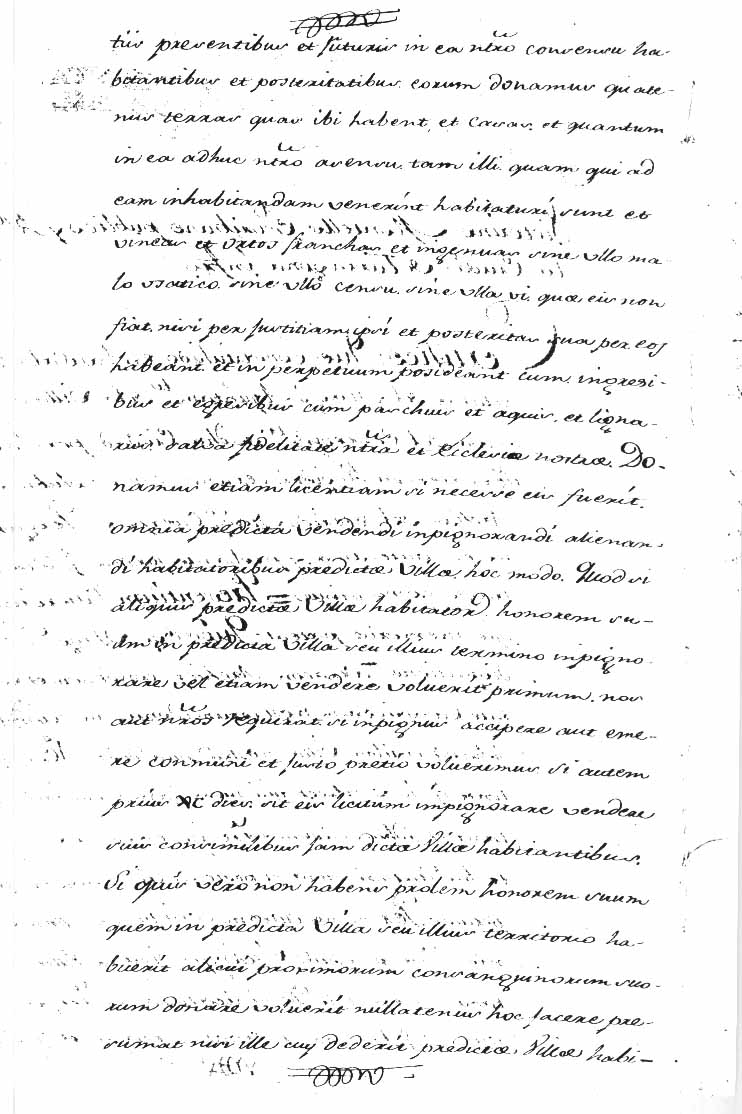 tiis presentibus et futuris in ea ntro consensu ha-
bitantibus et posteritatibus eorum donamus quate-
nus terras quas ibi habent, et casas, et quantum
in ea adhuc ntro asensu, tam illi quam qui ad
eam inhabitandam venerint habitaturi sunt et
vineas et ortos franchas et ingenuas sine ullo ma-
lo usatico, sine ullo censu, sine ulla vi, quæ eis non
fiat nisi per Justitiam, ipsi et posteritas sua per eos
habeant et in perpetuum posideant cum ingresi-
bus et egresibus cum paschuis et aquis, et ligna-
riis, salva fidelitate ntra et Eclesiæ nostræ. Do-
namus etiam licentiam si necesse eis fuerit.
omnia predicta vendendi inpignorandi alienan-
di habitatoribus predictæ Villæ, hoc modo. Quod si
aliquis predictæ Villæ habitator honorem su-
um in predicta Villa seu illius termino inpigno-
rare vel etiam vendere voluerit primum, nos
aut nros requirat, si inpignus accipere aut eme-
re conmuni et Justo pretio voluerimus. Si autem
prius XC dies, sit eis licitum impignorare vendere
suis consimilibus Jam dictæ Villæ habitantibus.
Si quis vero non habens prolem honorem suum
quem in predicta Villa seu illius territorio ha-
buerit alicui proximorum consanguinorum suo-
rum donare voluerit nullatenus hoc facere pre-
sumat nisi ille cuy dederit predictæ Villæ habi-